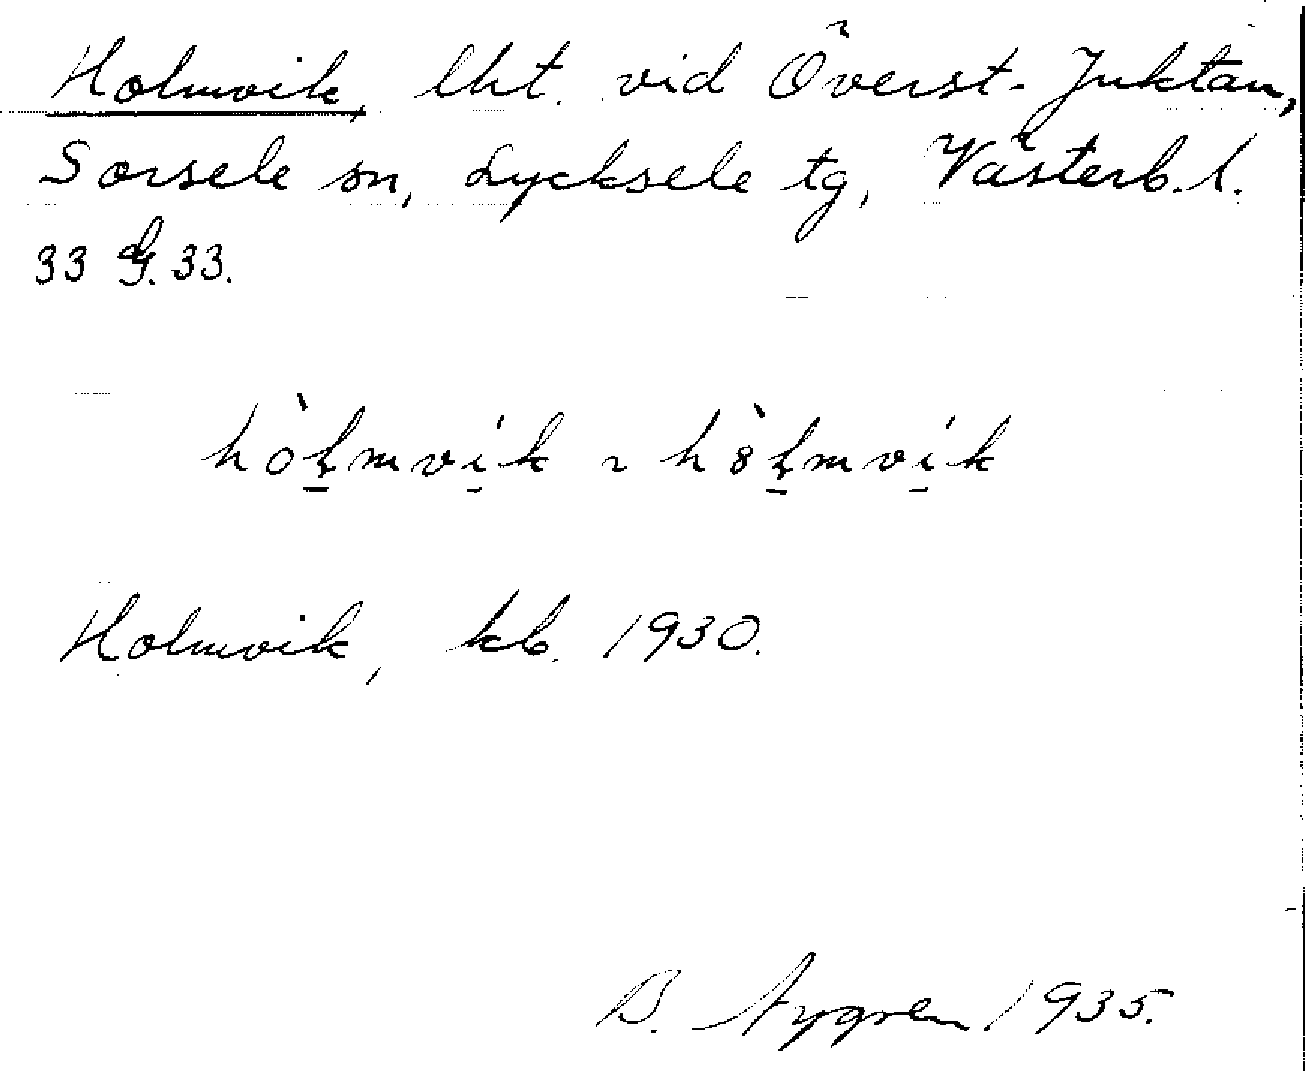 Holmvik, lht. vid Överst-Juktan,
Sorsele sn, Lycksele tg, Västerb. l.
33 G. 33.
hòḷmvi̠k ~ hòḷmvi̠k
Holmvik, kb. 1930.
B. Nygren 1935.